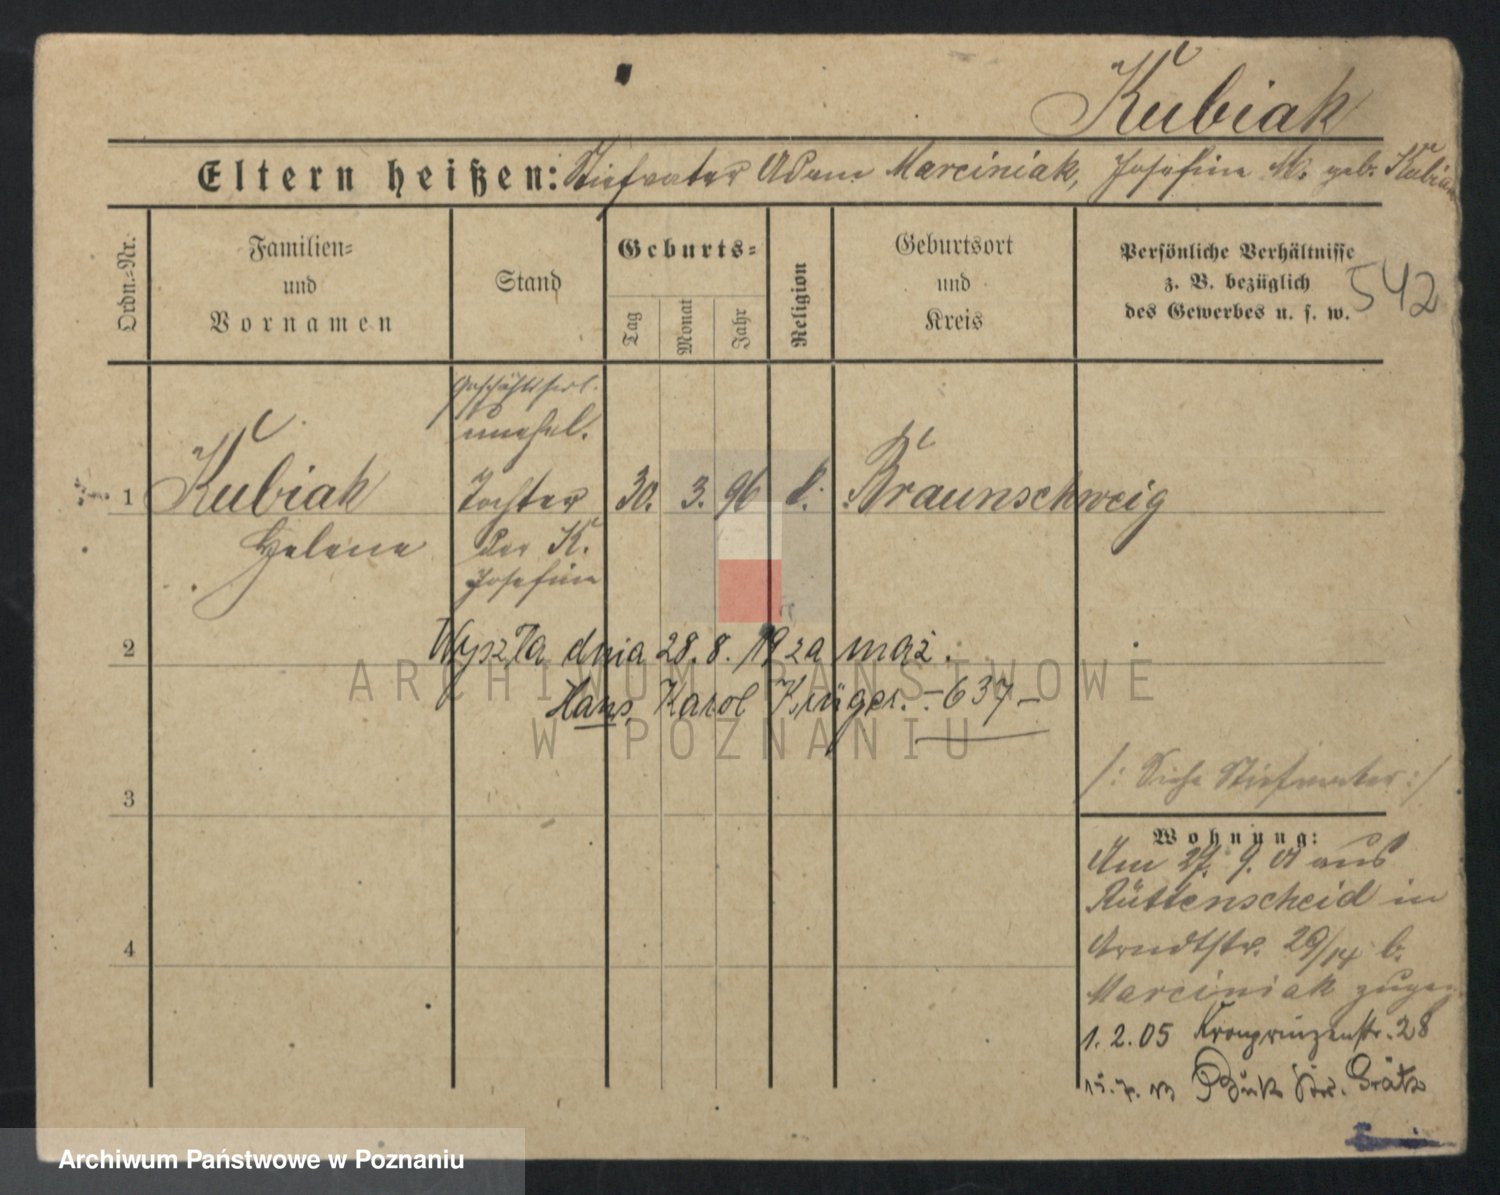 Kubiak
Eltern heißen: Stiefvater Adam Marciniak, Josefine M. geb. Kubiak
Ordn.-Nr.
Familien-
und
Vornamen
Stand
Geburts-
Tag
Monat
Jahr
Religion
Geburtsort
und
Kreis
Persönliche Verhältnisse
z. B. bezüglich
des Gewerbes u. s. w.
542
unehel.
1 Kubiak Tochter 30. 3. 96 k. Braunschweig
Helene der K.
Josefine
2 Wyszła dnia 28. 8. 19 za mąż.
Hans Karol Krüger. - 637 -
3
/: Siehe Stiefvater :/
Wohnung:
Am 27. 9. 01 aus
Rüttenscheid in
Arndtstr. 29/14 b.
4
Marciniak zugez.
1. 2. 05 Kronprinzenstr. 28
Buk Kr. Grätz
ARCHIWUM PAŃSTWOWE
W POZNANIU
Archiwum Państwowe w Poznaniu